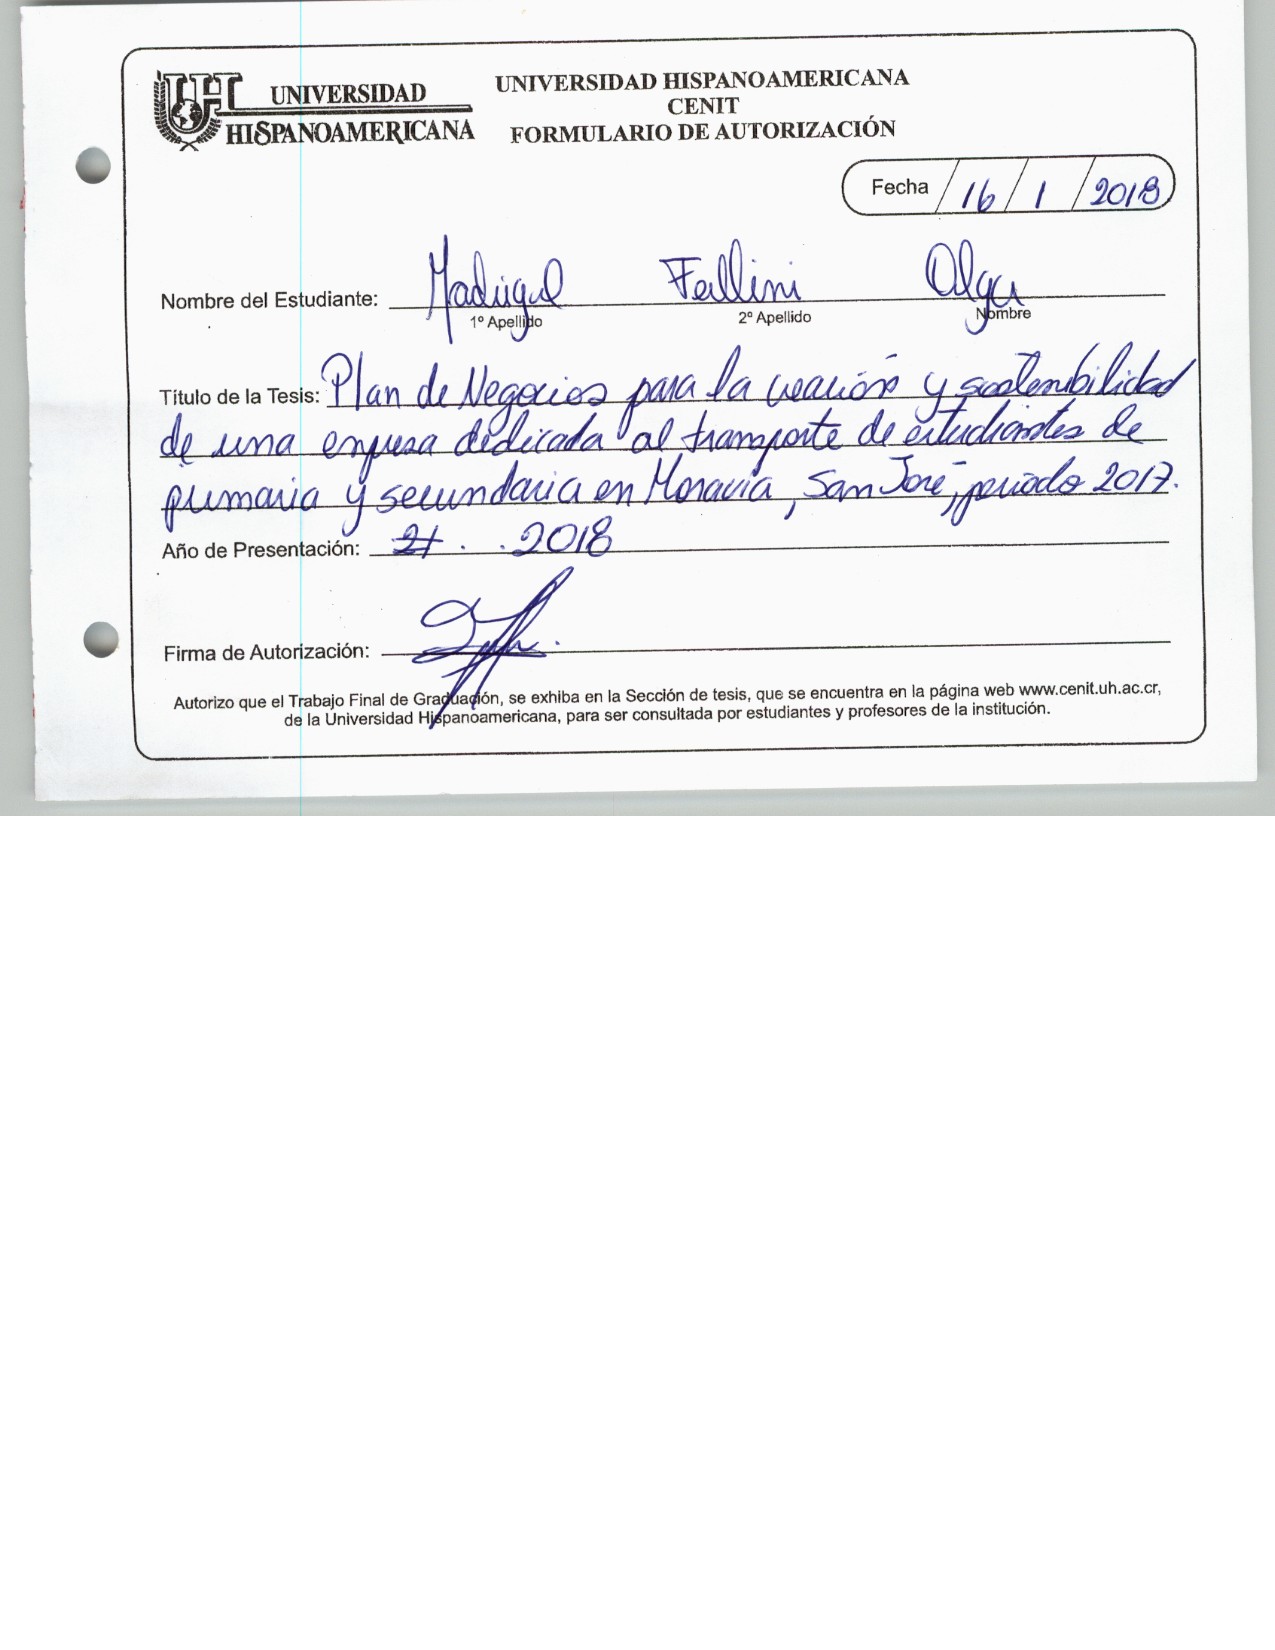 UNIVERSIDAD
HISPANOAMERICANA
UNIVERSIDAD HISPANOAMERICANA
CENIT
FORMULARIO DE AUTORIZACIÓN
Fecha / 16 / 1 / 2018
Nombre del Estudiante: Madrigal Fallini Olga
1º Apellido 2º Apellido Nombre
Título de la Tesis: Plan de Negocios para la creación y sostenibilidad
de una empresa dedicada al transporte de estudiantes de
primaria y secundaria en Moravia, San José, periodo 2017.
Año de Presentación: 21 . . 2018
Firma de Autorización:
Autorizo que el Trabajo Final de Graduación, se exhiba en la Sección de tesis, que se encuentra en la página web www.cenit.uh.ac.cr,
de la Universidad Hispanoamericana, para ser consultada por estudiantes y profesores de la institución.